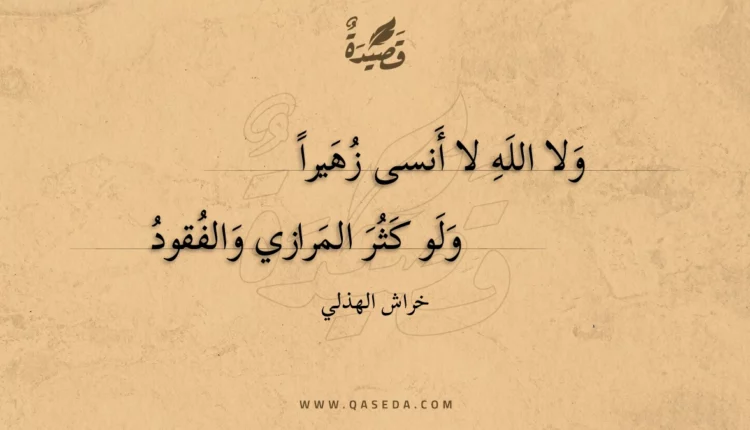 قَصِيْدَةٌ
وَلا اللَهِ لا أَنسى زُهَيراً
وَلَو كَثُرَ المَرازي وَالفُقودُ
خراش الهذلي
WWW.QASEDA.COM